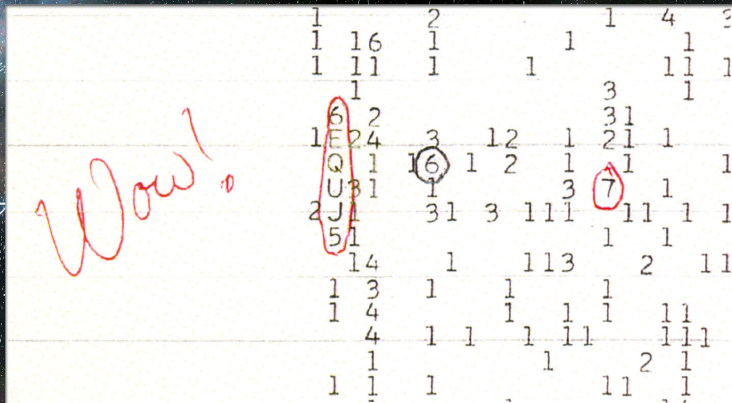 Wow!
1 2 1 4
1 16 1 1 1
1 11 1 1 11 1
1 3 1
6 2 31
1 E24 3 12 1 21 1
Q 1 16 1 2 1 1 1
U31 1 3 7 1
2 J1 31 3 111 11 1 1
51 1 1
14 1 113 2 11
1 3 1 1 1
1 4 1 1 1 11
4 1 1 1 11 111
1 1 2 1
1 1 1 11 1